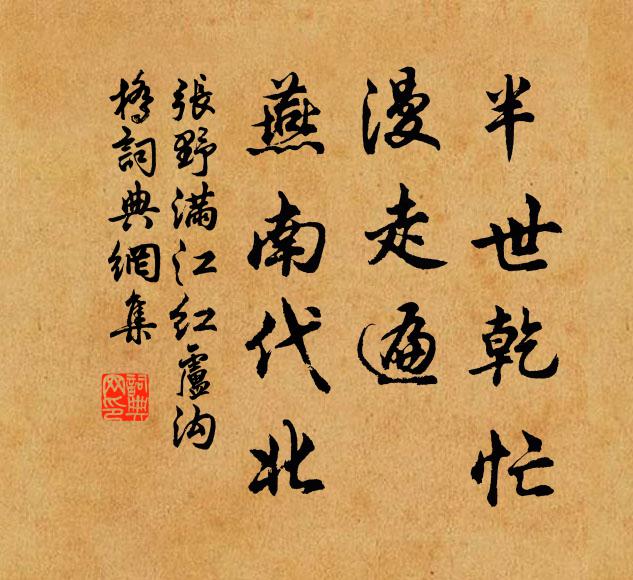 半世乾忙
漫走遍
燕南代北
張野滿江紅盧沟
橋詞典網集
詞典
网印